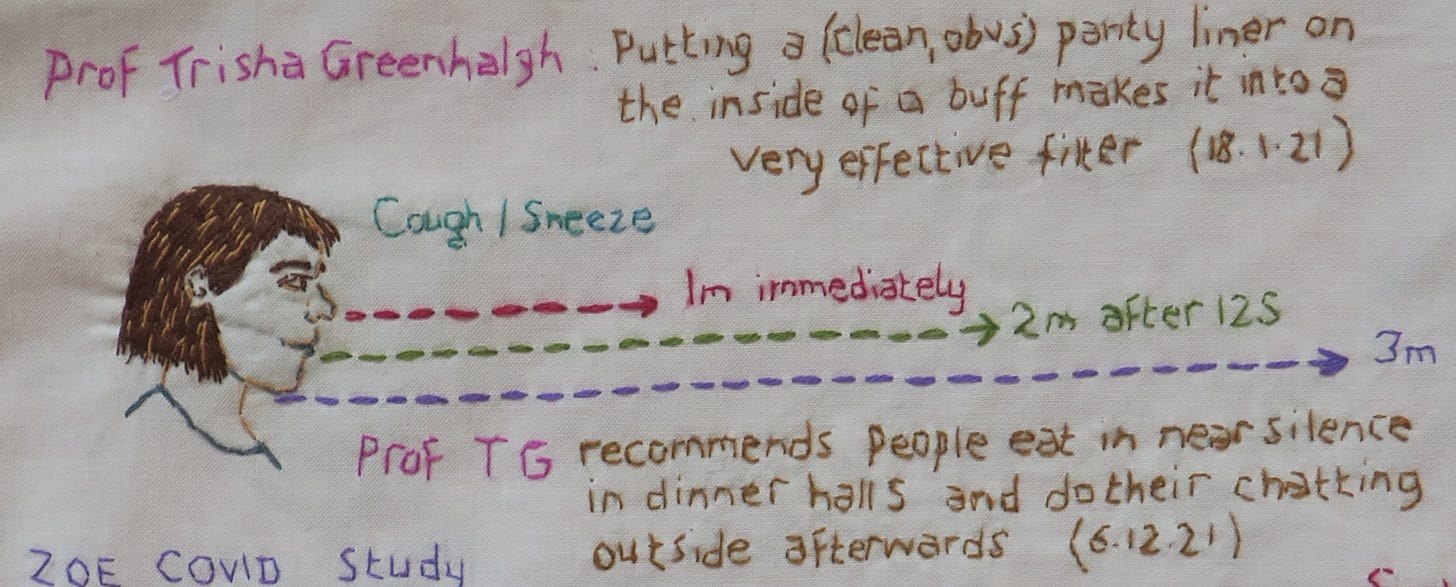 Prof Trisha Greenhalgh : Putting a (clean, obvs) panty liner on
the inside of a buff makes it into a
very effective filter (18.1.21)
Cough / Sneeze
1m immediately
2m after 12s
3m
Prof TG recommends people eat in near silence
in dinner halls and do their chatting
outside afterwards (6.12.21)
ZOE COVID Study